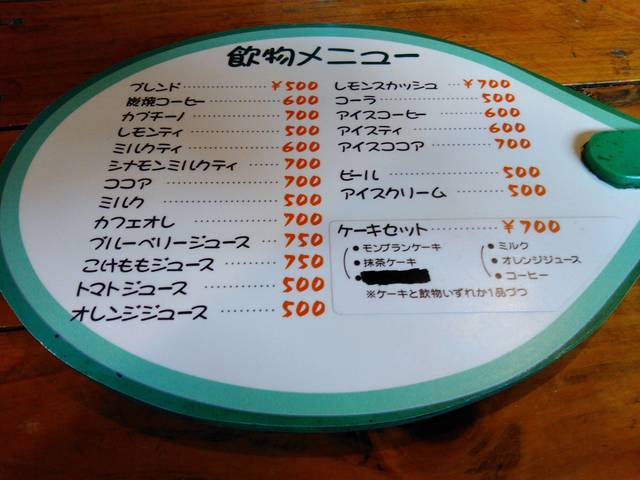 飲物メニュー
ブレンド ¥500
炭焼コーヒー 600
カプチーノ 700
レモンティ 500
ミルクティ 600
シナモンミルクティ 700
ココア 700
ミルク 500
カフェオレ 700
ブルーベリージュース 750
こけももジュース 750
トマトジュース 500
オレンジジュース 500
レモンスカッシュ ¥700
コーラ 500
アイスコーヒー 600
アイスティ 600
アイスココア 700
ビール 500
アイスクリーム 500
ケーキセット ¥700
●モンブランケーキ
●抹茶ケーキ
●ミルク
●オレンジジュース
●コーヒー
※ケーキと飲物いずれか1品づつ